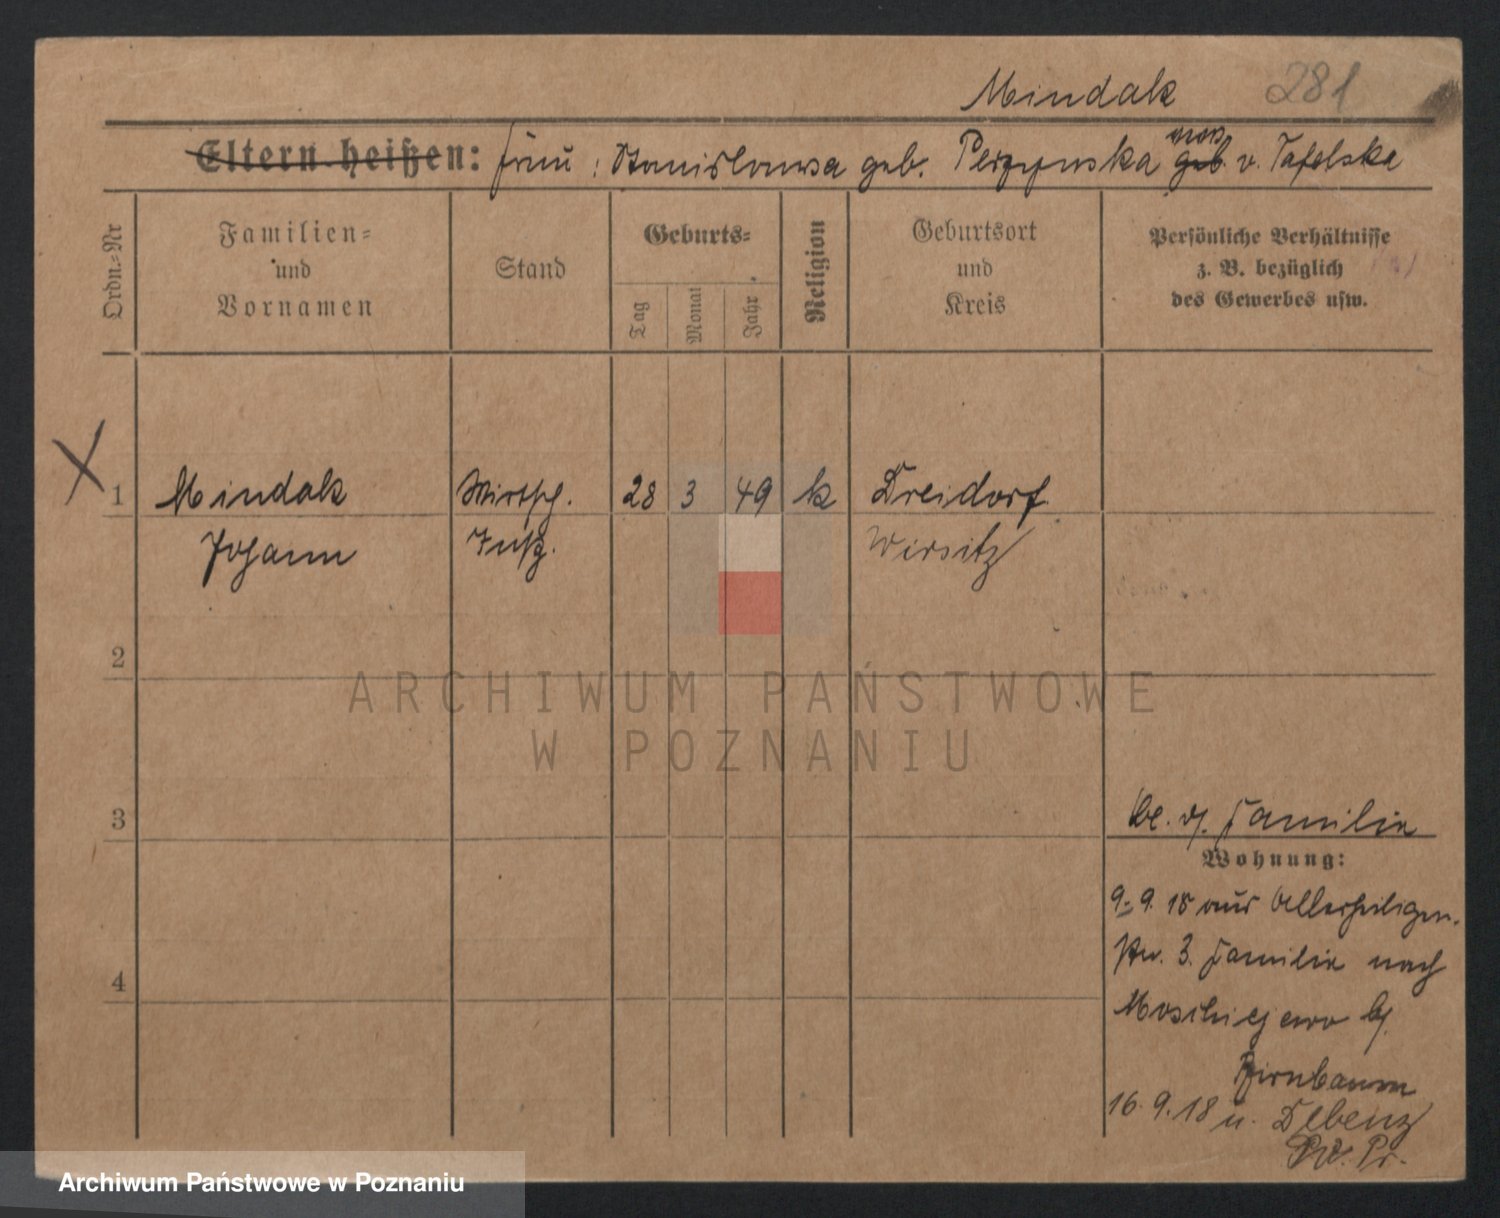 Mindak 281
Eltern heißen: Frau: Stanislawa geb. Perzynska geb. v. Tafelska
Ordn.-Nr
Familien-
und
Vornamen
Stand
Geburts-
Tag
Monat
Jahr
Religion
Geburtsort
und
Kreis
Persönliche Verhältnisse
z. B. bezüglich
des Gewerbes usw.
1 Mindak Wirtsch. 28 3 49 k Dreidorf
Johann Insp. Wirsitz
2
ARCHIWUM PAŃSTWOWE
W POZNANIU
3
Familie
Wohnung:
9.9.18 aus Allerheiligen-
str. 3. Familie nach
b/
Birnbaum
4
16.9.18 n.
Archiwum Państwowe w Poznaniu